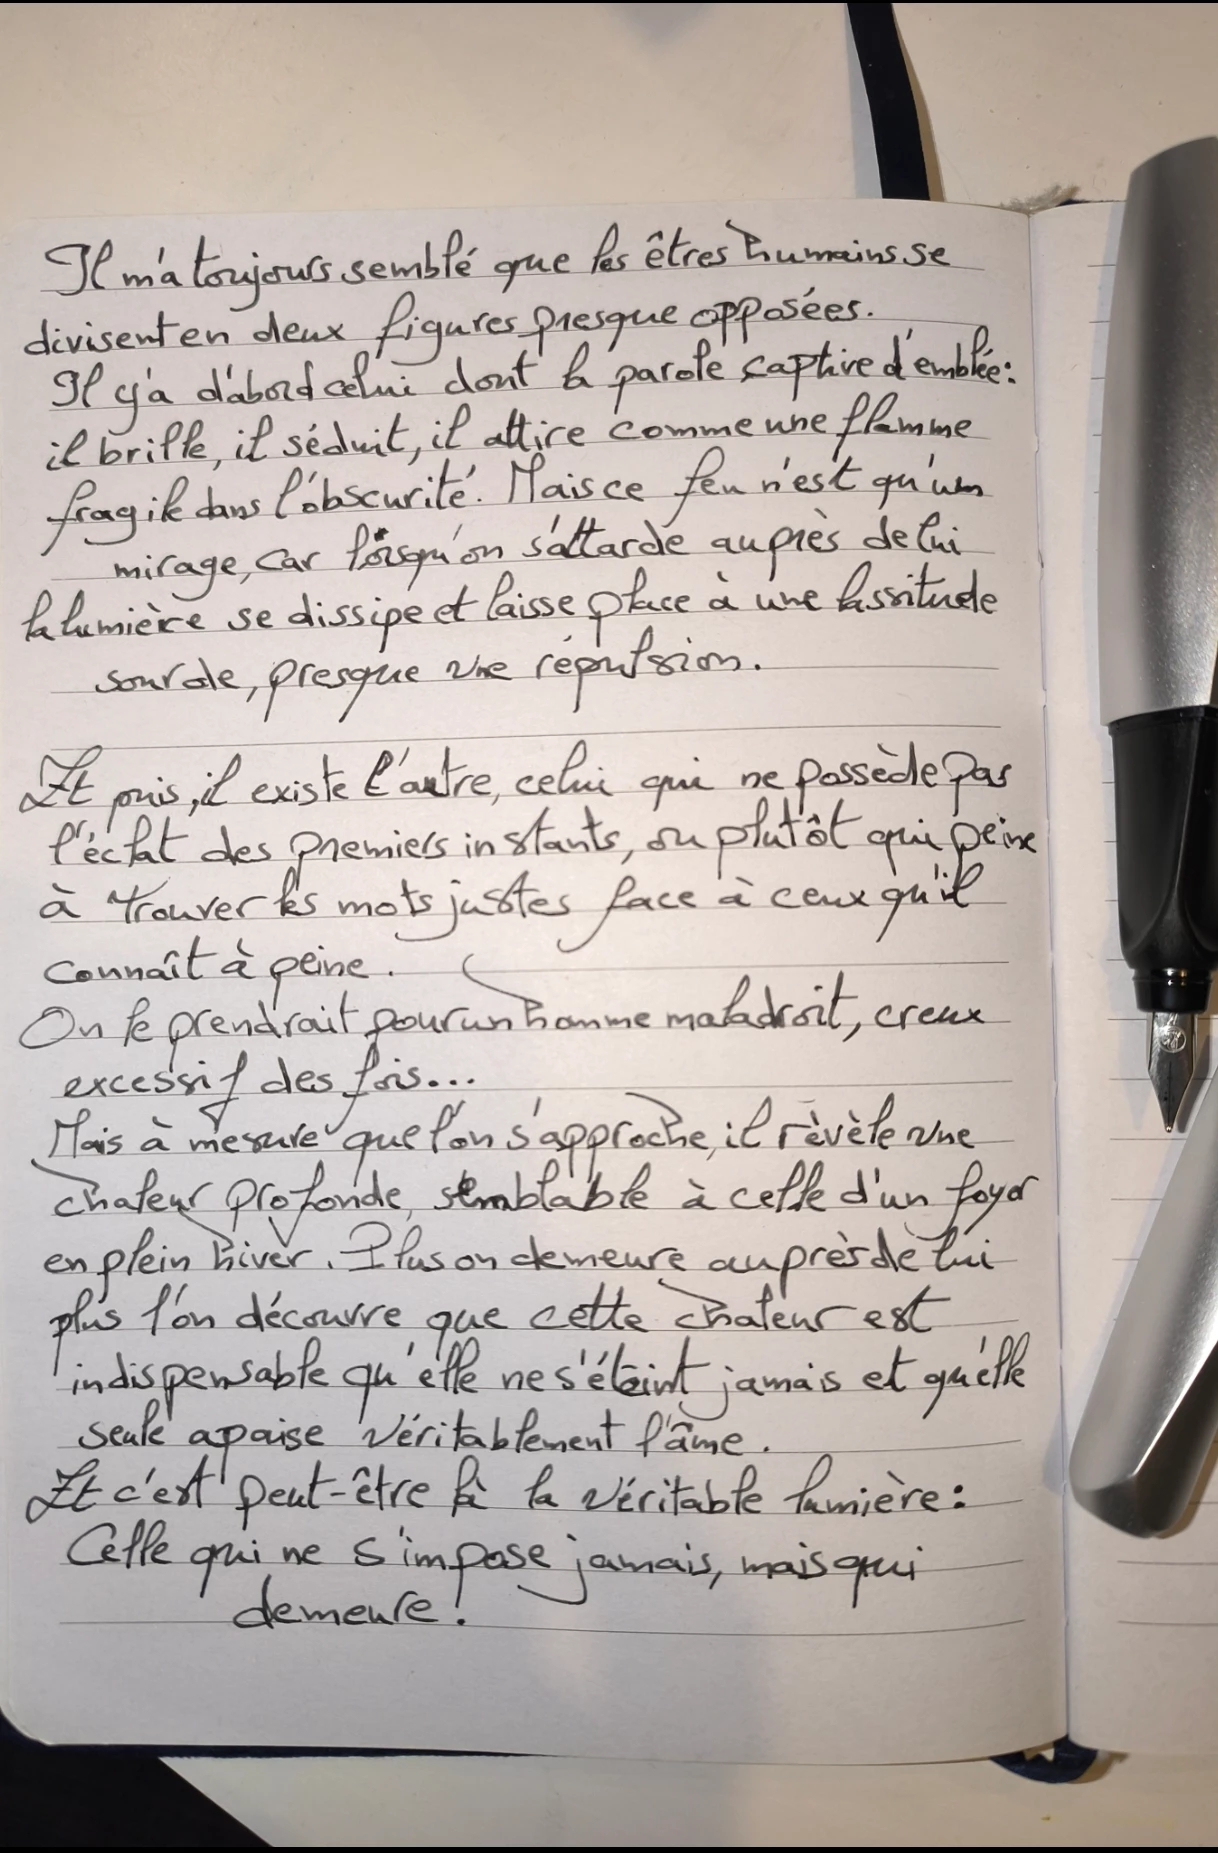 Il m'a toujours semblé que les êtres humains se
divisent en deux figures presque opposées.
Il y'a d'abord celui dont la parole captive d'emblée:
il brille, il séduit, il attire comme une flamme
fragile dans l'obscurité. Mais ce feu n'est qu'un
mirage, car lorsqu'on s'attarde auprès de lui
la lumière se dissipe et laisse place à une lassitude
sourde, presque une répulsion.
Et puis, il existe l'autre, celui qui ne possède pas
l'éclat des premiers instants, ou plutôt qui peine
à trouver les mots justes face à ceux qu'il
connaît à peine.
On le prendrait pour un homme maladroit, creux
excessif des fois...
Mais à mesure que l'on s'approche, il révèle une
chaleur profonde, semblable à celle d'un foyer
en plein hiver. Plus on demeure auprès de lui
plus l'on découvre que cette chaleur est
indispensable qu'elle ne s'éteint jamais et qu'elle
seule apaise véritablement l'âme.
Et c'est peut-être là la véritable lumière:
Celle qui ne s'impose jamais, mais qui
demeure!